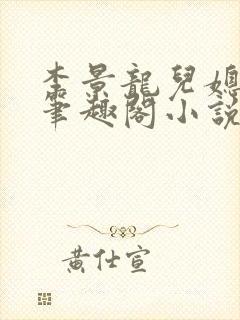 景龍兒媳
筆趣閣小說
黃仕宣